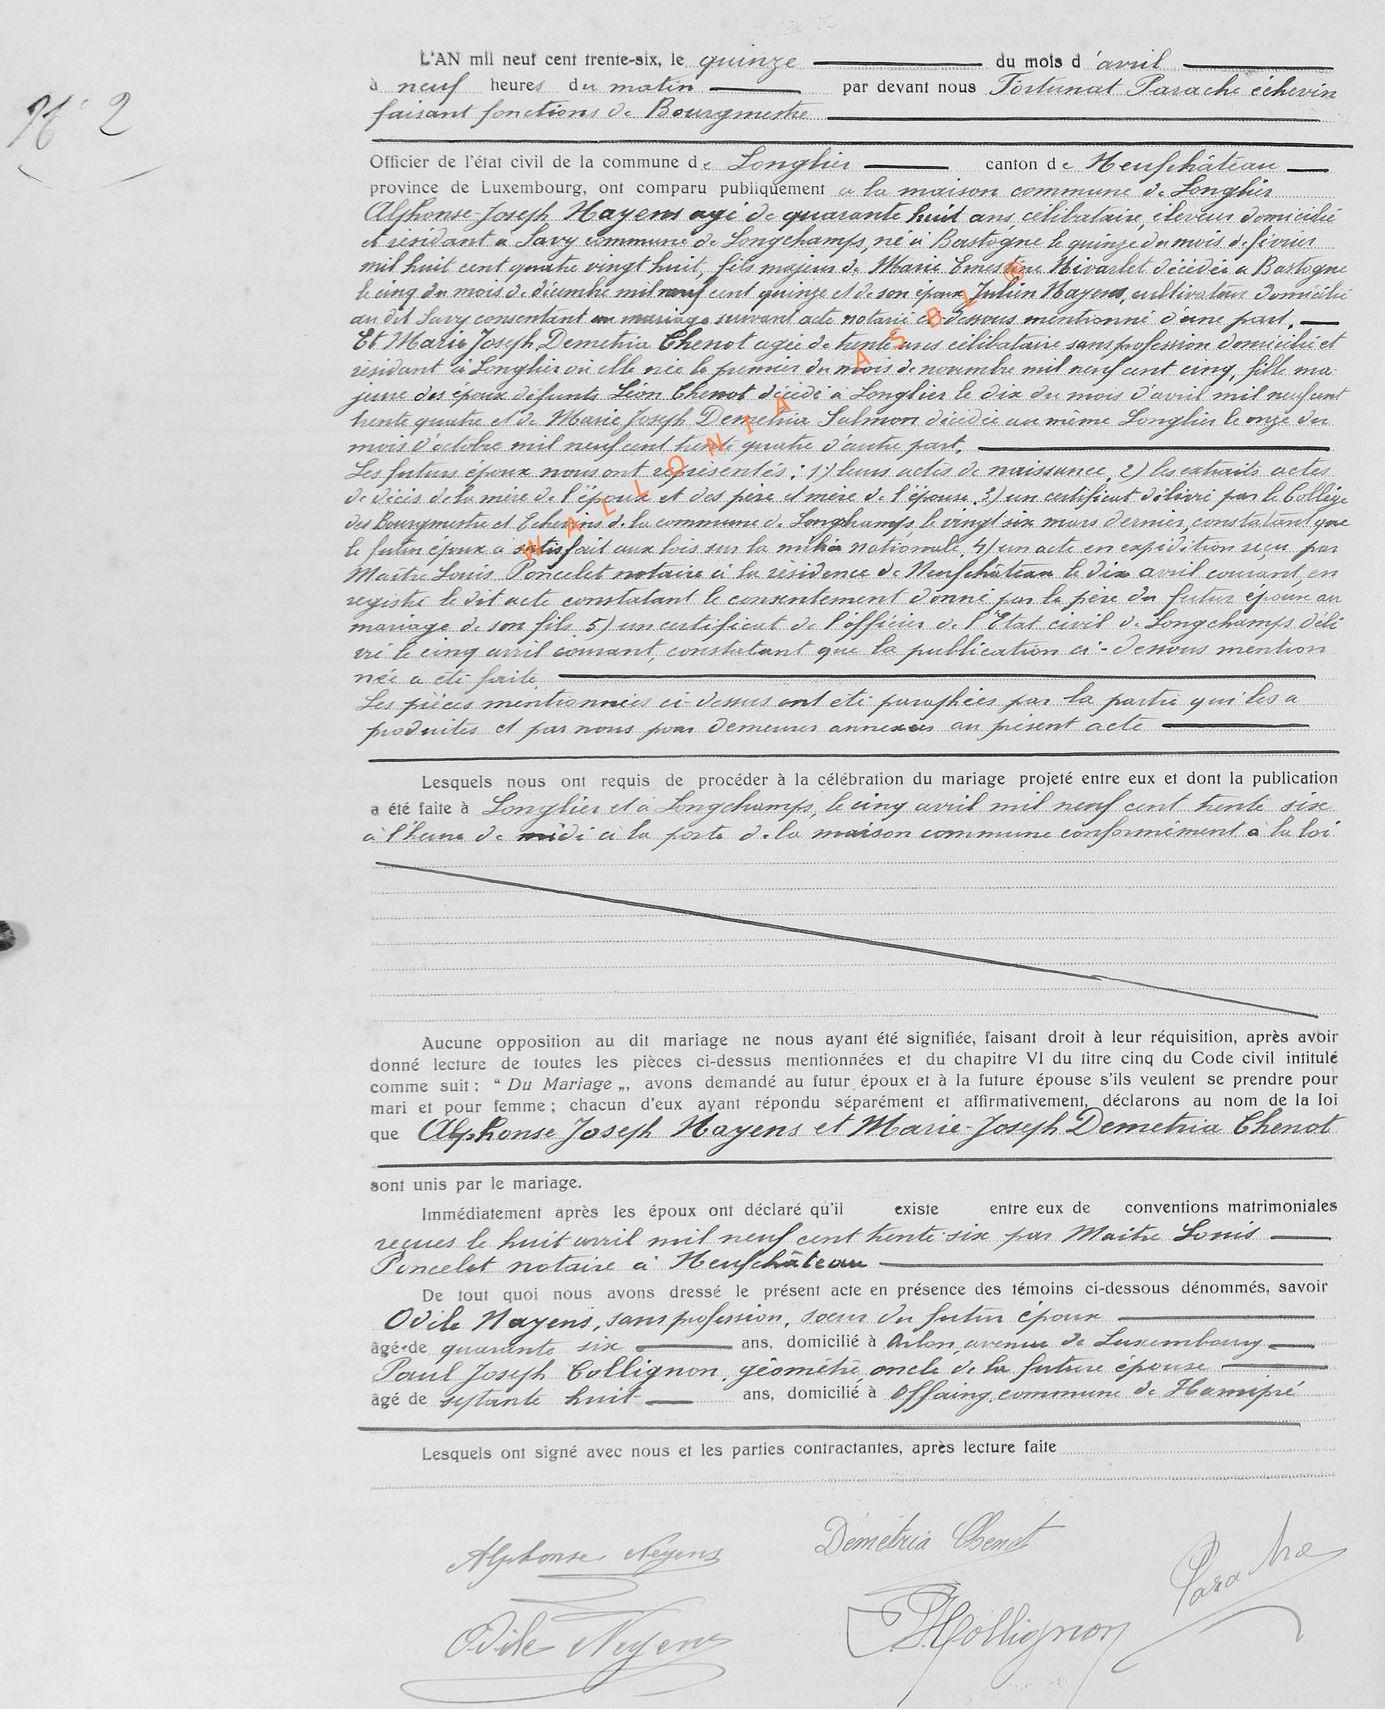 N° 2
L'AN mil neuf cent trente-six, le quinze du mois d'avril
à neuf heures du matin par devant nous Fortunat Parache échevin
faisant fonctions de Bourgmestre
Officier de l'état civil de la commune de Longlier canton de Neufchâteau
province de Luxembourg, ont comparu publiquement à la maison commune de Longlier
Alphonse-Joseph Nayens agé de quarante huit ans, célibataire, éleveur domicilié
et résidant à Savy commune de Longchamps, né à Bastogne le quinze du mois de février
mil huit cent quatre vingt huit, fils majeur de Marie Ernestine Nivarlet décédée à Bastogne
le cinq du mois de décembre mil neuf cent quinze et de son époux Julien Nayens, cultivateur domicilié
au dit Savy consentant au mariage suivant acte notarié ci dessous mentionné d'une part.
Et Marie Joseph Demetria Chenot agée de trente ans célibataire sans profession domiciliée et
résidant à Longlier où elle née le premier du mois de novembre mil neuf cent cinq, fille ma
jeure des époux défunts Léon Chenot décédé à Longlier le dix du mois d'avril mil neuf cent
trente quatre et de Marie Joseph Demetria Salmon décédée au même Longlier le onze du
mois d'octobre mil neuf cent trente quatre d'autre part.
Les futurs époux nous ont représentés : 1) leurs actes de naissance. 2) les extraits actes
de décès de la mère de l'époux et des père et mère de l'épouse. 3) un certificat délivré par le Collège
des Bourgmestre et Echevins de la commune de Longchamps, le vingt six mars dernier, constatant que
le futur époux a satisfait aux lois sur la milice nationale. 4) un acte en expédition reçu par
Maître Louis Poncelet notaire à la résidence de Neufchâteau le dix avril courant, en
registré le dit acte constatant le consentement donné par le père du futur époux au
mariage de son fils. 5) un certificat de l'officier de l'Etat civil de Longchamps déli
vré le cinq avril courant, constatant que la publication ci-dessous mention
née a été faite
Les pièces mentionnées ci dessus ont été paraphées par la partie qui les a
produites et par nous pour demeurer annexées au présent acte
Lesquels nous ont requis de procéder à la célébration du mariage projeté entre eux et dont la publication
a été faite à Longlier et à Longchamps, le cinq avril mil neuf cent trente six
à l'heure de midi à la porte de la maison commune conformément à la loi
Aucune opposition au dit mariage ne nous ayant été signifiée, faisant droit à leur réquisition, après avoir
donné lecture de toutes les pièces ci-dessus mentionnées et du chapitre VI du titre cinq du Code civil intitulé
comme suit : “ Du Mariage „, avons demandé au futur époux et à la future épouse s'ils veulent se prendre pour
mari et pour femme ; chacun d'eux ayant répondu séparément et affirmativement, déclarons au nom de la loi
que Alphonse Joseph Nayens et Marie-Joseph Demetria Chenot
sont unis par le mariage.
Immédiatement après les époux ont déclaré qu'il existe entre eux de conventions matrimoniales
reçues le huit avril mil neuf cent trente-six par Maître Louis
Poncelet notaire à Neufchâteau
De tout quoi nous avons dressé le présent acte en présence des témoins ci-dessous dénommés, savoir
Odile Nayens, sans profession, soeur du futur époux
âgé de quarante six ans, domicilié à Arlon, avenue de Luxembourg
Paul Joseph Collignon, géomètre, oncle de la future épouse
âgé de septante huit ans, domicilié à Offaing, commune de Hamipré
Lesquels ont signé avec nous et les parties contractantes, après lecture faite
Alphonse Neyens
Démétria Chenot
Parache
Odile Neyens
PJCollignon
WALLONIA ASBL ®